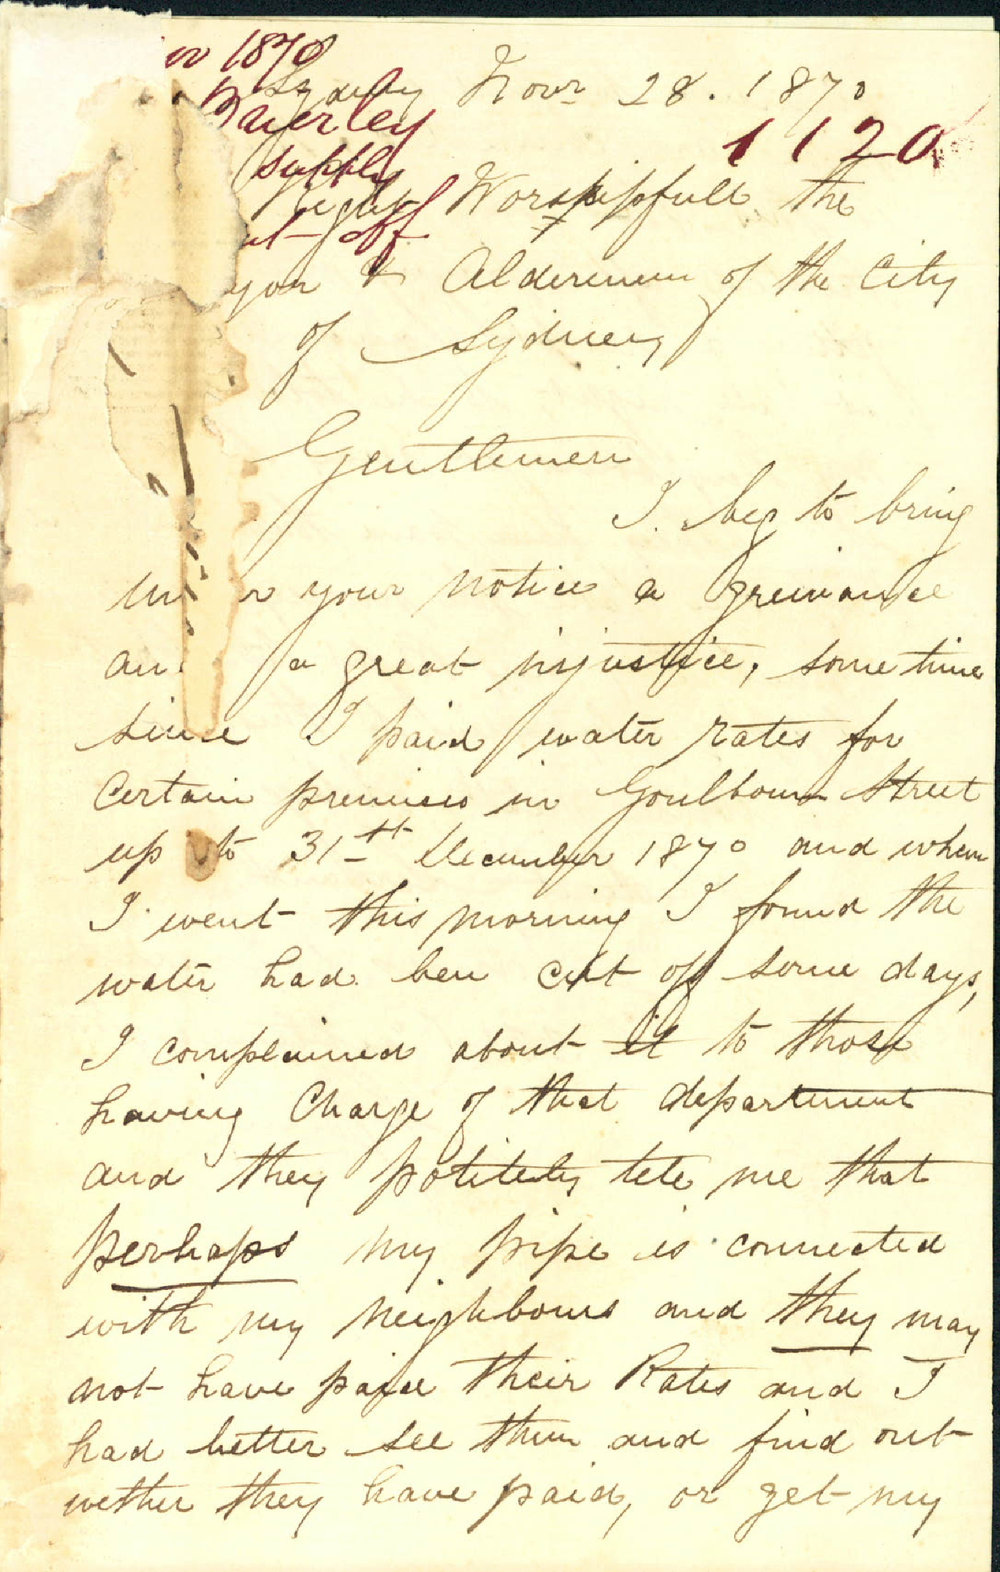 1870
Sydney Novr 28. 1870
Byerley
1120
supply
right Worshipfull the
off
yor & Aldermen of the City
of Sydney
Gentlemen
I beg to bring
un r your notice a greivance
an a great injustice, some time
since I paid water rates for
Certain premises in Goulbourn Street
up to 31st December 1870 and when
I went this morning I found the
water had ben cut off some days,
I complained about it to those
having Charge of that department
and they politely tele me that
perhaps my pipe is connected
with my neighbours and they may
not have paid their Rates and I
had better see them and find out
wether they have paid, or get my